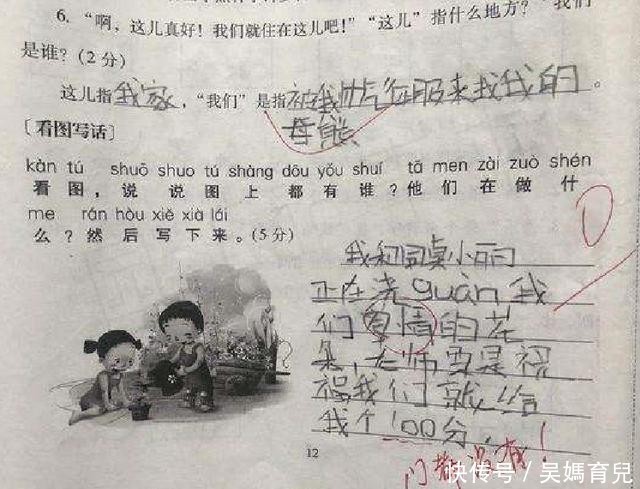 6. “啊，这儿真好！我们就住在这儿吧！”“这儿”指什么地方？“我们”
是谁？(2分)
这儿指我家，“我们”是指被我帅气征服来找我的。
母熊
[看图写话]
kàn tú shuō shuo tú shàng dōu yǒu shuí tā men zài zuò shén
看图，说说图上都有谁？他们在做什
me rán hòu xiě xià lái
么？然后写下来。(5分)
0
我和同桌小丽
正在浇guàn我
们爱情的花
朵，老师要是祝
福我们就给
我个100分，
门都没有！
12
快传号／吴媽育兒